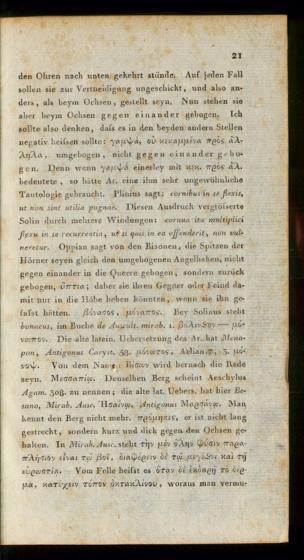 21
den Ohren nach unten gekehrt stünde. Auf jeden Fall
sollen sie zur Vertheidigung ungeschickt, und also an-
ders, als beym Ochsen, gestellt seyn. Nun stehen sie
aber beym Ochsen gegen einander gebogen. Ich
sollte also denken, daſs es in den beyden andern Stellen
negativ heiſsen sollte: γαμψὰ, οὐ κεκαμμένα πρὸς ἄλ-
ληλα, umgebogen, nicht gegen einander gebo-
gen. Denn wenn γαμψὰ einerley mit κεκ. πρὸς ἄλ.
bedeutete, so hätte Ar. eine ihm sehr ungewöhnliche
Tautologie gebraucht. Plinius sagt: cornibus in se flexis,
ut non sint utilia pugnae. Diesen Ausdruck vergröſserte
Solin durch mehrere Windungen: cornua ita multiplici
flexu in se recurrentia, ut si quis in ea offenderit, non vul-
neretur. Oppian sagt von den Bisonen, die Spitzen der
Hörner seyen gleich den umgebogenen Angelhaken, nicht
gegen einander in die Queere gebogen, sondern zurück
gebogen, ὕπτια; daher sie ihren Gegner oder Feind da-
mit nur in die Höhe heben könnten, wenn sie ihn ge-
faſst hätten. βόνασος, μόναπος. Bey Solinus steht
bonacus, im Buche de Auscult. mirab. 1. βόλινθον — μό-
ναπον. Die alte latein. Uebersetzung des Ar. hat Mona-
pon, Antigonus Caryst. 58. μόνωτος, Aelian 7, 3. μό-
νωψ. Von dem Namen Bison wird hernach die Rede
seyn. Μεσσαπίῳ. Denselben Berg scheint Aeschylus
Agam. 308. zu nennen; die alte lat. Uebers. hat hier Be-
sano, Mirab. Ausc. Ἡσαίνῳ. Antigonus Μαρσάνῳ. Man
kennt den Berg nicht mehr. πρόμηκες, er ist nicht lang
gestreckt, sondern kurz und dick gegen den Ochsen ge-
halten. In Mirab. Ausc. steht τὴν μὲν ὅλην φύσιν παρα-
πλήσιον εἶναι τῷ βοΐ, διαφέρειν δὲ τῷ μεγέθει καὶ τῇ
εὐρωστίᾳ. Vom Felle heiſst es ὅταν δὲ ἐκδαρῇ τὸ δέρ-
μα, κατέχειν τόπον ὀκτακλίνου, woraus man vermu-